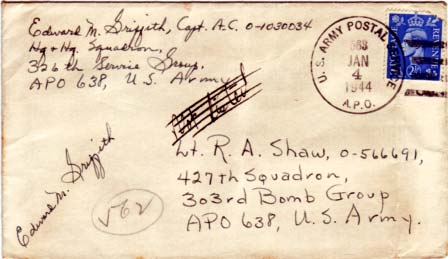 Edward M. Griffith, Capt. A.C. 0-1030034
Hq & Hq. Squadron,
326th Service Group,
APO 638, U.S. Army
U.S. ARMY POSTAL SERVICE
JAN
4
1944
A.P.O.
POSTAGE REVENUE
2½
Lt. R. A. Shaw, 0-566691,
427th Squadron,
303rd Bomb Group
APO 638, U.S. Army.
Edward M. Griffith
√62